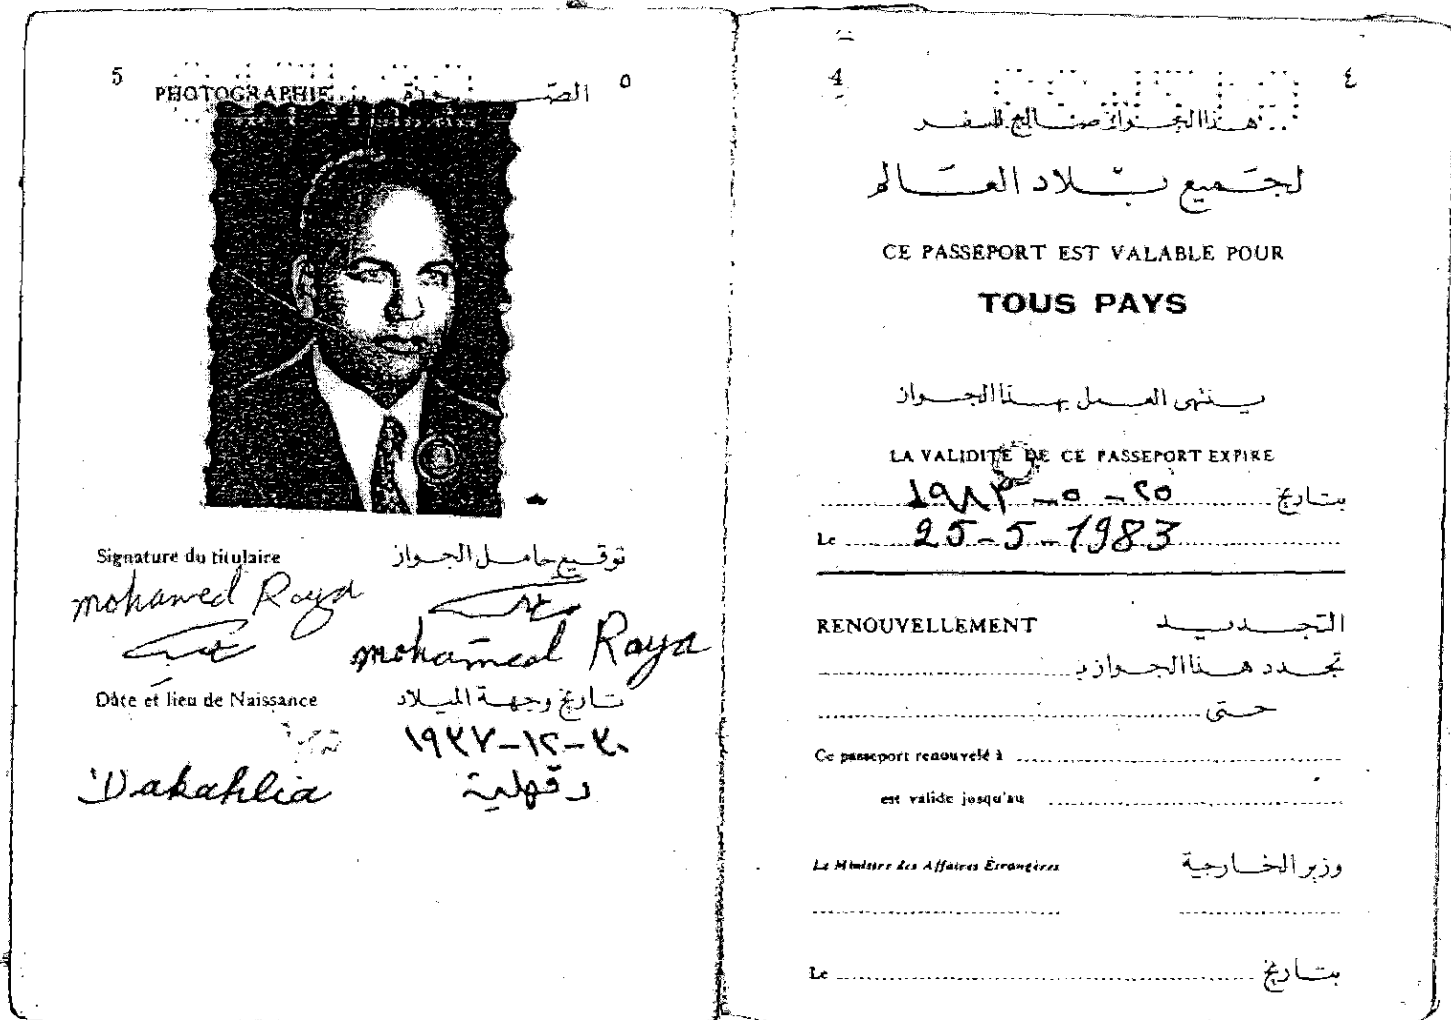 5
PHOTOGRAPHIE
الصّورة
٥
Signature du titulaire
توقيع حامل الجواز
mohamed Raya
mohamed Raya
Dâte et lieu de Naissance
تاريخ وجهة الميلاد
١٩٣٧-١٢-٣٠
Dakahlia
دقهلية
4
٤
هذا الجواز صالح للسفر
لجميع بلاد العالم
CE PASSEPORT EST VALABLE POUR
TOUS PAYS
ينتهى العمل بهذا الجواز
LA VALIDITÉ DE CE PASSEPORT EXPIRE
بتاريخ ٢٥-٥-١٩٨٣
Le 25-5-1983
RENOUVELLEMENT
التجديد
تجدد هذا الجواز بـ
حتى
Ce passeport renouvelé à
est valide jusqu'au
Le Ministre des Affaires Étrangères
وزير الخارجية
Le
بتاريخ